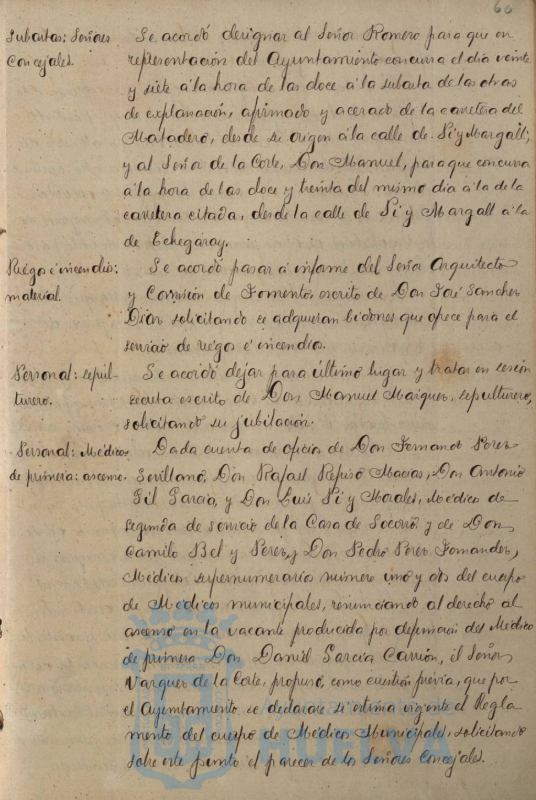 60
Subastas: Señores
Concejales.
Se acordó designar al Señor Romero para que en
representación del Ayuntamiento concurra el dia veinte
y siete á la hora de las doce á la subasta de las obras
de explanación, afirmado y acerado de la carretera del
Matadero, desde su origen á la calle de Pi y Margall;
y al Señor de la Corte, Don Manuel, para que concurra
á la hora de las doce y treinta del mismo dia á la de la
carretera citada, desde la calle de Pi y Margall á la
de Echegaray.
Riego é incendio:
material.
Se acordó pasar á informe del Señor Arquitecto
y Comisión de Fomento, escrito de Don José Sanchez
Diaz solicitando se adquieran bidones que ofrece para el
servicio de riegos é incendio.
Personal: sepul-
turero.
Se acordó dejar para último lugar y tratar en sesión
secreta escrito de Don Manuel Marquez, sepulturero,
solicitando su jubilación.
Personal: Médico
de primera: ascenso.
Dada cuenta de oficio de Don Fernando Perez
Sevillano, Don Rafael Repiso Macias, Don Antonio
Gil Garcia, y Don Luis Pi y Morales, Médico de
segunda de servicio de la Casa de Socorro, y de Don
Camilo Bel y Perez, y Don Pedro Perez Fernandez,
Médicos supernumerarios número uno y dos del cuerpo
de Médicos municipales, renunciando al derecho al
ascenso en la vacante producida por defunción del Médico
de primera Don Daniel Garcia Carrión, el Señor
Vazquez de la Corte, propuso, como cuestión previa, que por
el Ayuntamiento se declarase si estima vigente el Regla-
mento del cuerpo de Médicos Municipales, solicitando
sobre este punto el parecer de los Señores Concejales.
HUELVA